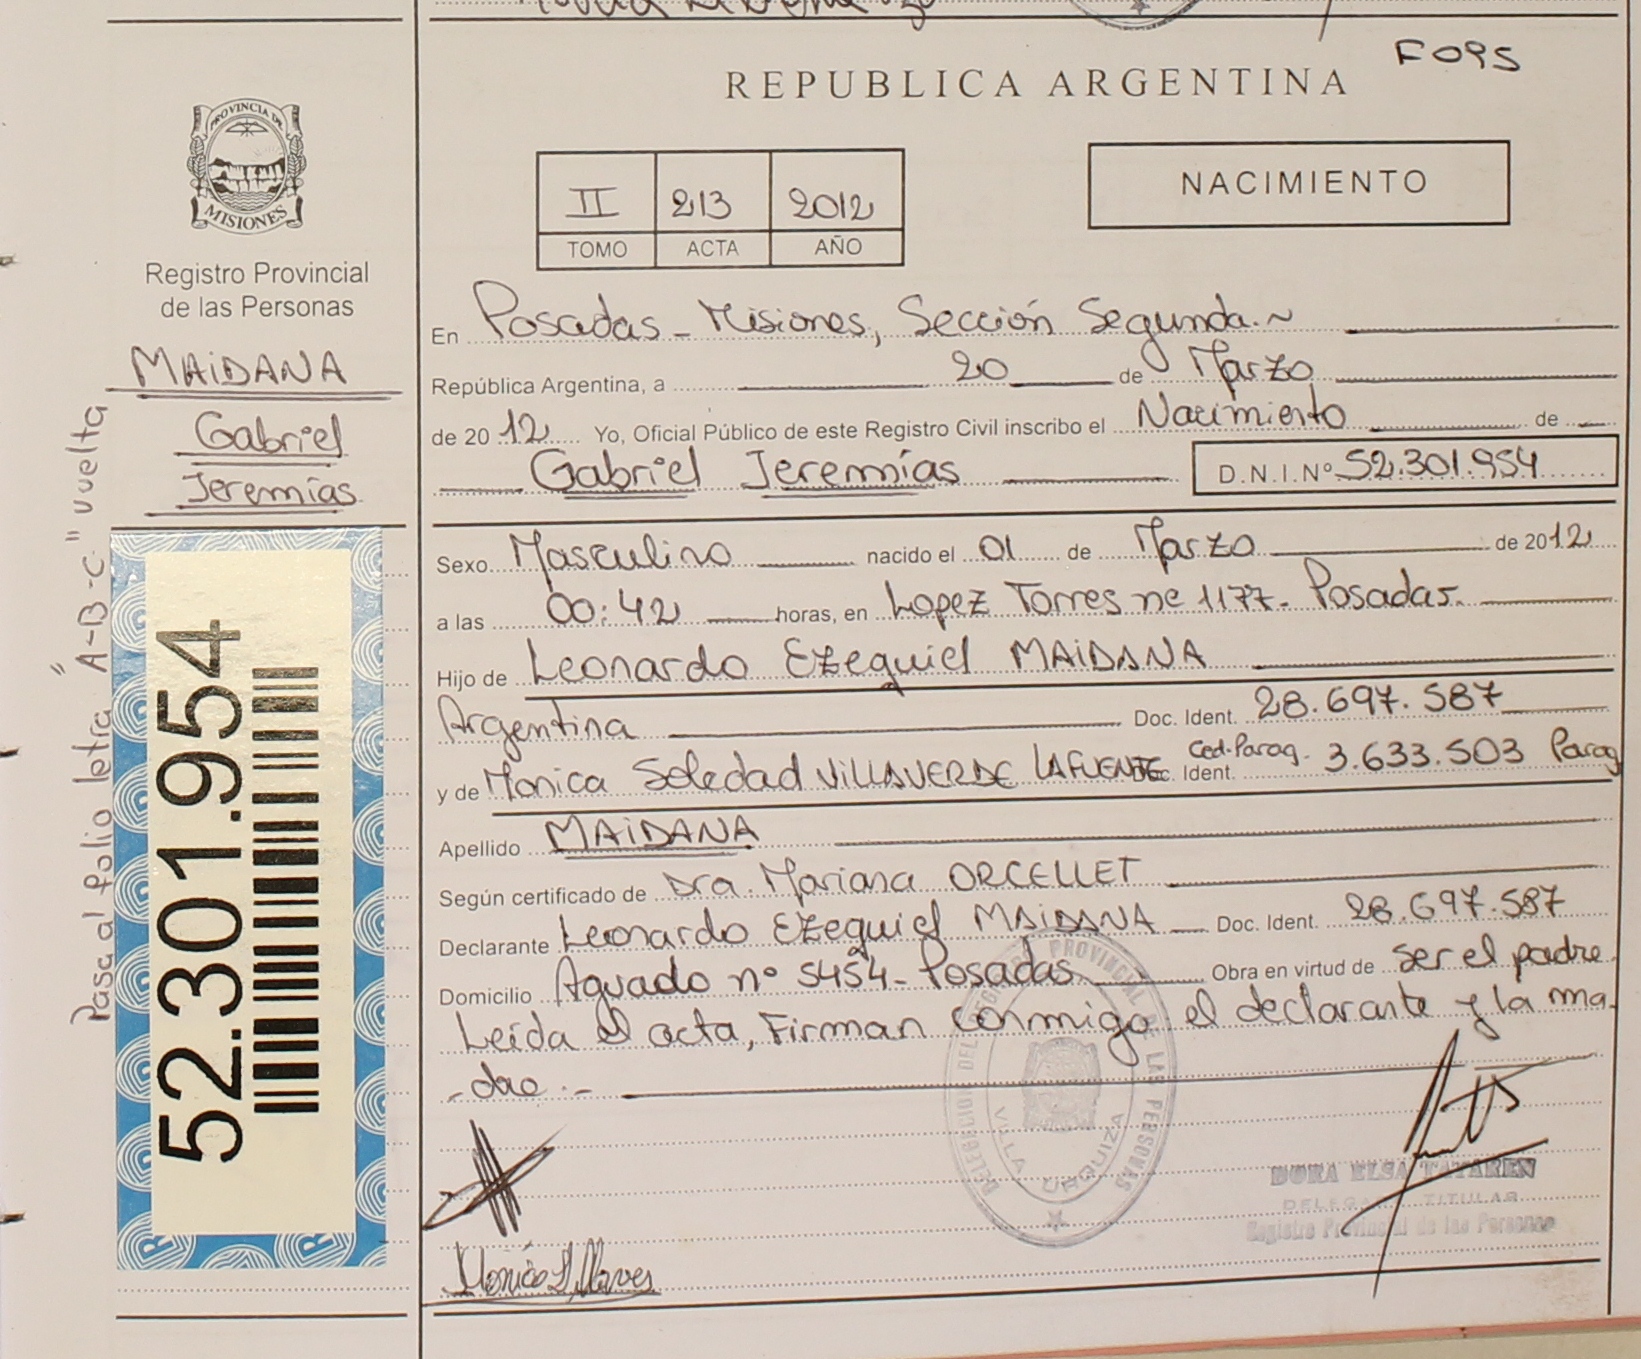 F095
REPUBLICA ARGENTINA
PROVINCIA DE
MISIONES
Registro Provincial
de las Personas
MAIDANA
Gabriel
Jeremías
Pasa al folio letra "A-B-C" vuelta
52.301.954
II 213 2012
TOMO ACTA AÑO
NACIMIENTO
En Posadas - Misiones, Sección Segunda.~
República Argentina, a 20 de Marzo
de 20 12 Yo, Oficial Público de este Registro Civil inscribo el Nacimiento de
Gabriel Jeremías D.N.I.Nº 52.301.954
Sexo Masculino nacido el 01 de Marzo de 2012
a las 00:42 horas, en Lopez Torres nº 1177- Posadas.
Hijo de Leonardo Ezequiel MAIDANA
Argentina Doc. Ident. 28.697.587
y de Monica Soledad VILLAVERDE LAFUENTE Doc. Ident. Ced. Parag. 3.633.503 Parag
Apellido MAIDANA
Según certificado de Dra. Mariana ORCELLET
Declarante Leonardo Ezequiel MAIDANA Doc. Ident. 28.697.587
Domicilio Aguado nº 5454- Posadas Obra en virtud de ser el padre.
Leída el acta, Firman conmigo el declarante y la ma-
-dre.-
DELEGACION DEL REGISTRO PROVINCIAL DE LAS PERSONAS
VILLA URQUIZA
DORA ELSA TATAREN
DELEGADA TITULAR
Registro Provincial de las Personas